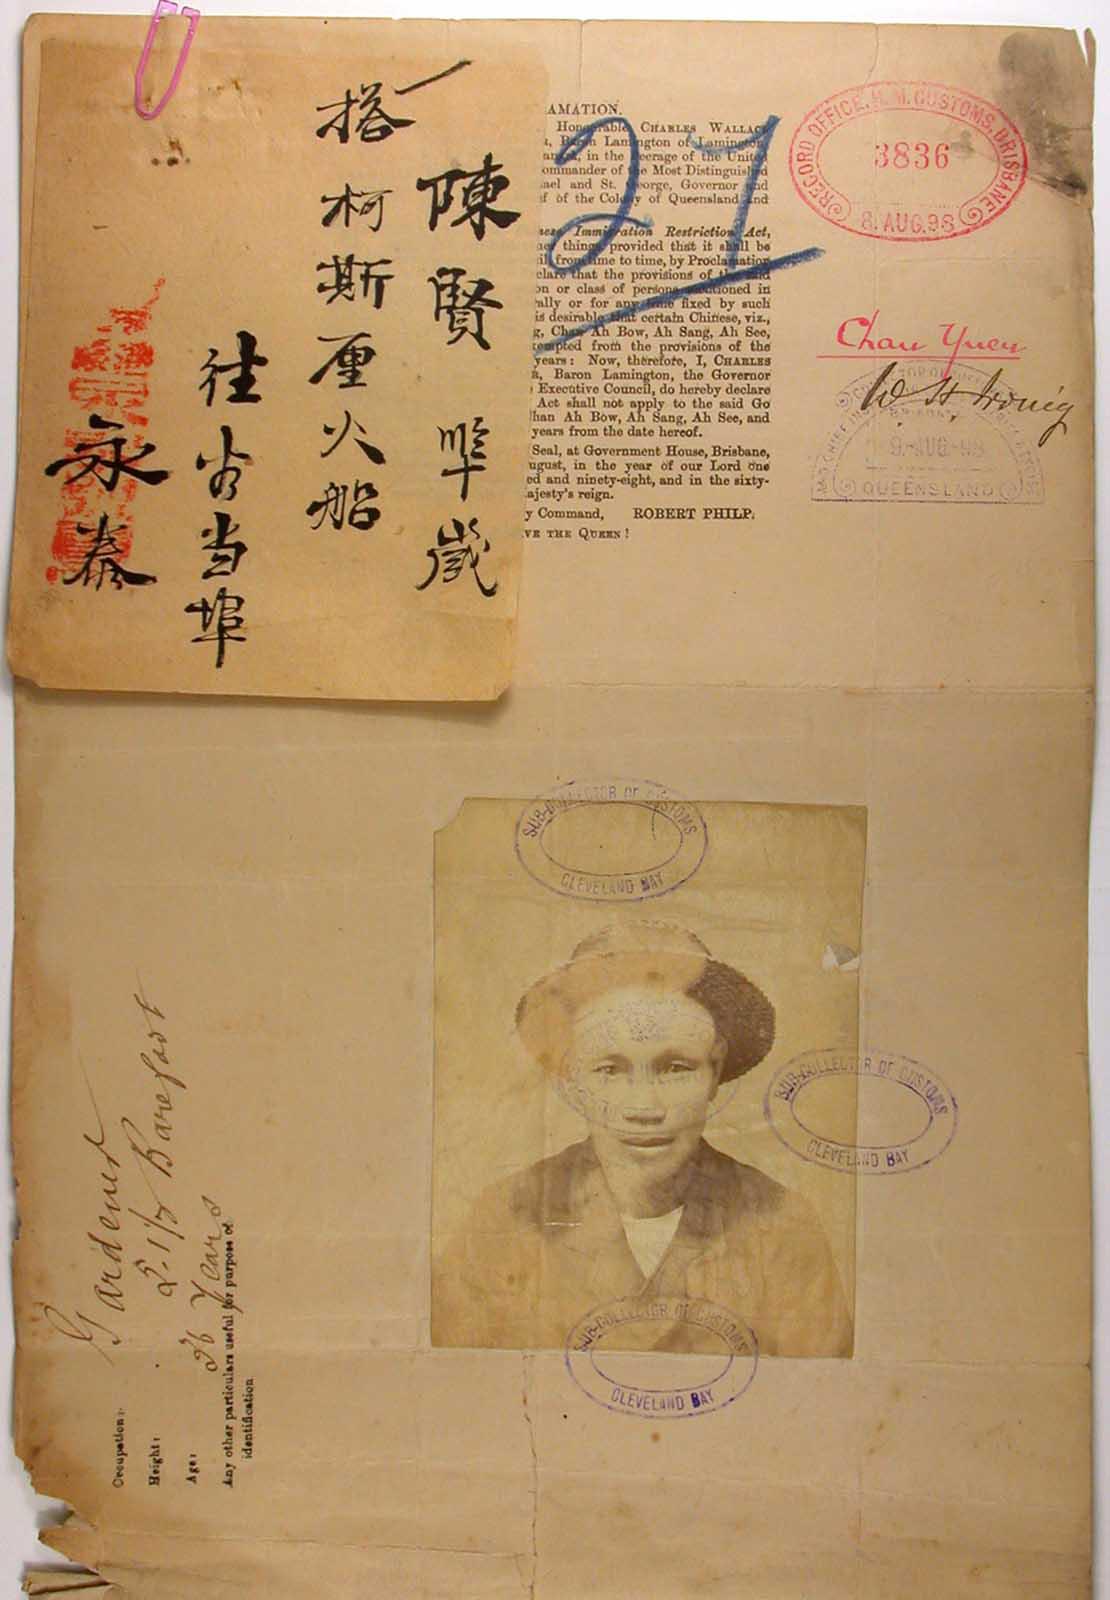 陳賢
歲
搭柯斯厘火船
往省当埠
永泰
AMATION.
Honourable CHARLES WALLACE
Baron Lamington of Lamington,
in the Peerage of the United
ommander of the Most Distinguished
ael and St. George, Governor and
f of the Colony of Queensland and
nese Immigration Restriction Act,
ner things provided that it shall be
il from time to time, by Proclamation
clare that the provisions of the said
on or class of persons mentioned in
ally or for any time fixed by such
is desirable that certain Chinese, viz.,
g, Chan Ah Bow, Ah Sang, Ah See,
xempted from the provisions of the
years: Now, therefore, I, CHARLES
Baron Lamington, the Governor
Executive Council, do hereby declare
Act shall not apply to the said Go
han Ah Bow, Ah Sang, Ah See, and
years from the date hereof.
Seal, at Government House, Brisbane,
ugust, in the year of our Lord one
ed and ninety-eight, and in the sixty-
ajesty's reign.
y Command, ROBERT PHILP.
AVE THE QUEEN!
27
RECORD OFFICE, H. M. CUSTOMS, BRISBANE
3836
8. AUG. 98
Chau Yuen
W. H. Irving
9-AUG-98
QUEENSLAND
SUB-COLLECTOR OF CUSTOMS
CLEVELAND BAY
SUB-COLLECTOR OF CUSTOMS
CLEVELAND BAY
SUB-COLLECTOR OF CUSTOMS
CLEVELAND BAY
Occupation: Gardener
Height: 5.1½ Barefoot
Age: Years
Any other particulars useful for purpose of
identification